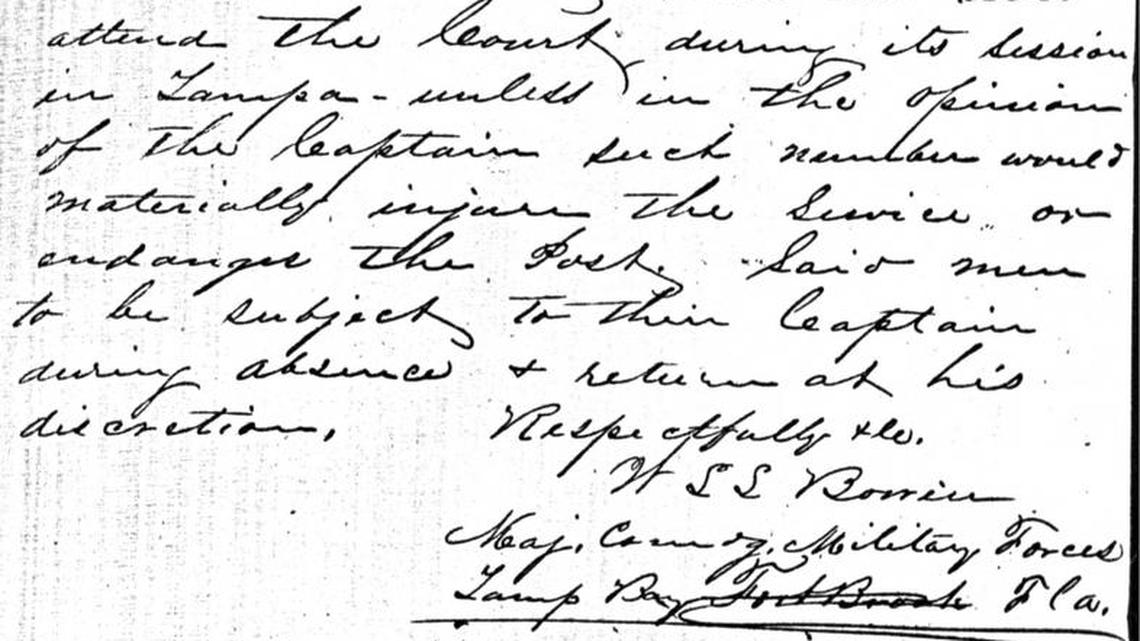 attend the Court, during its session
in Tampa - unless in the opinion
of the Captain such number would
materially injure the Service or
endanger the Post. Said men
to be subject to their Captain
during absence & return at his
discretion. Respectfully &c.
W S S Bowen
Maj. Comdg. Military Forces
Tamp Bay Fort Brook Fla.